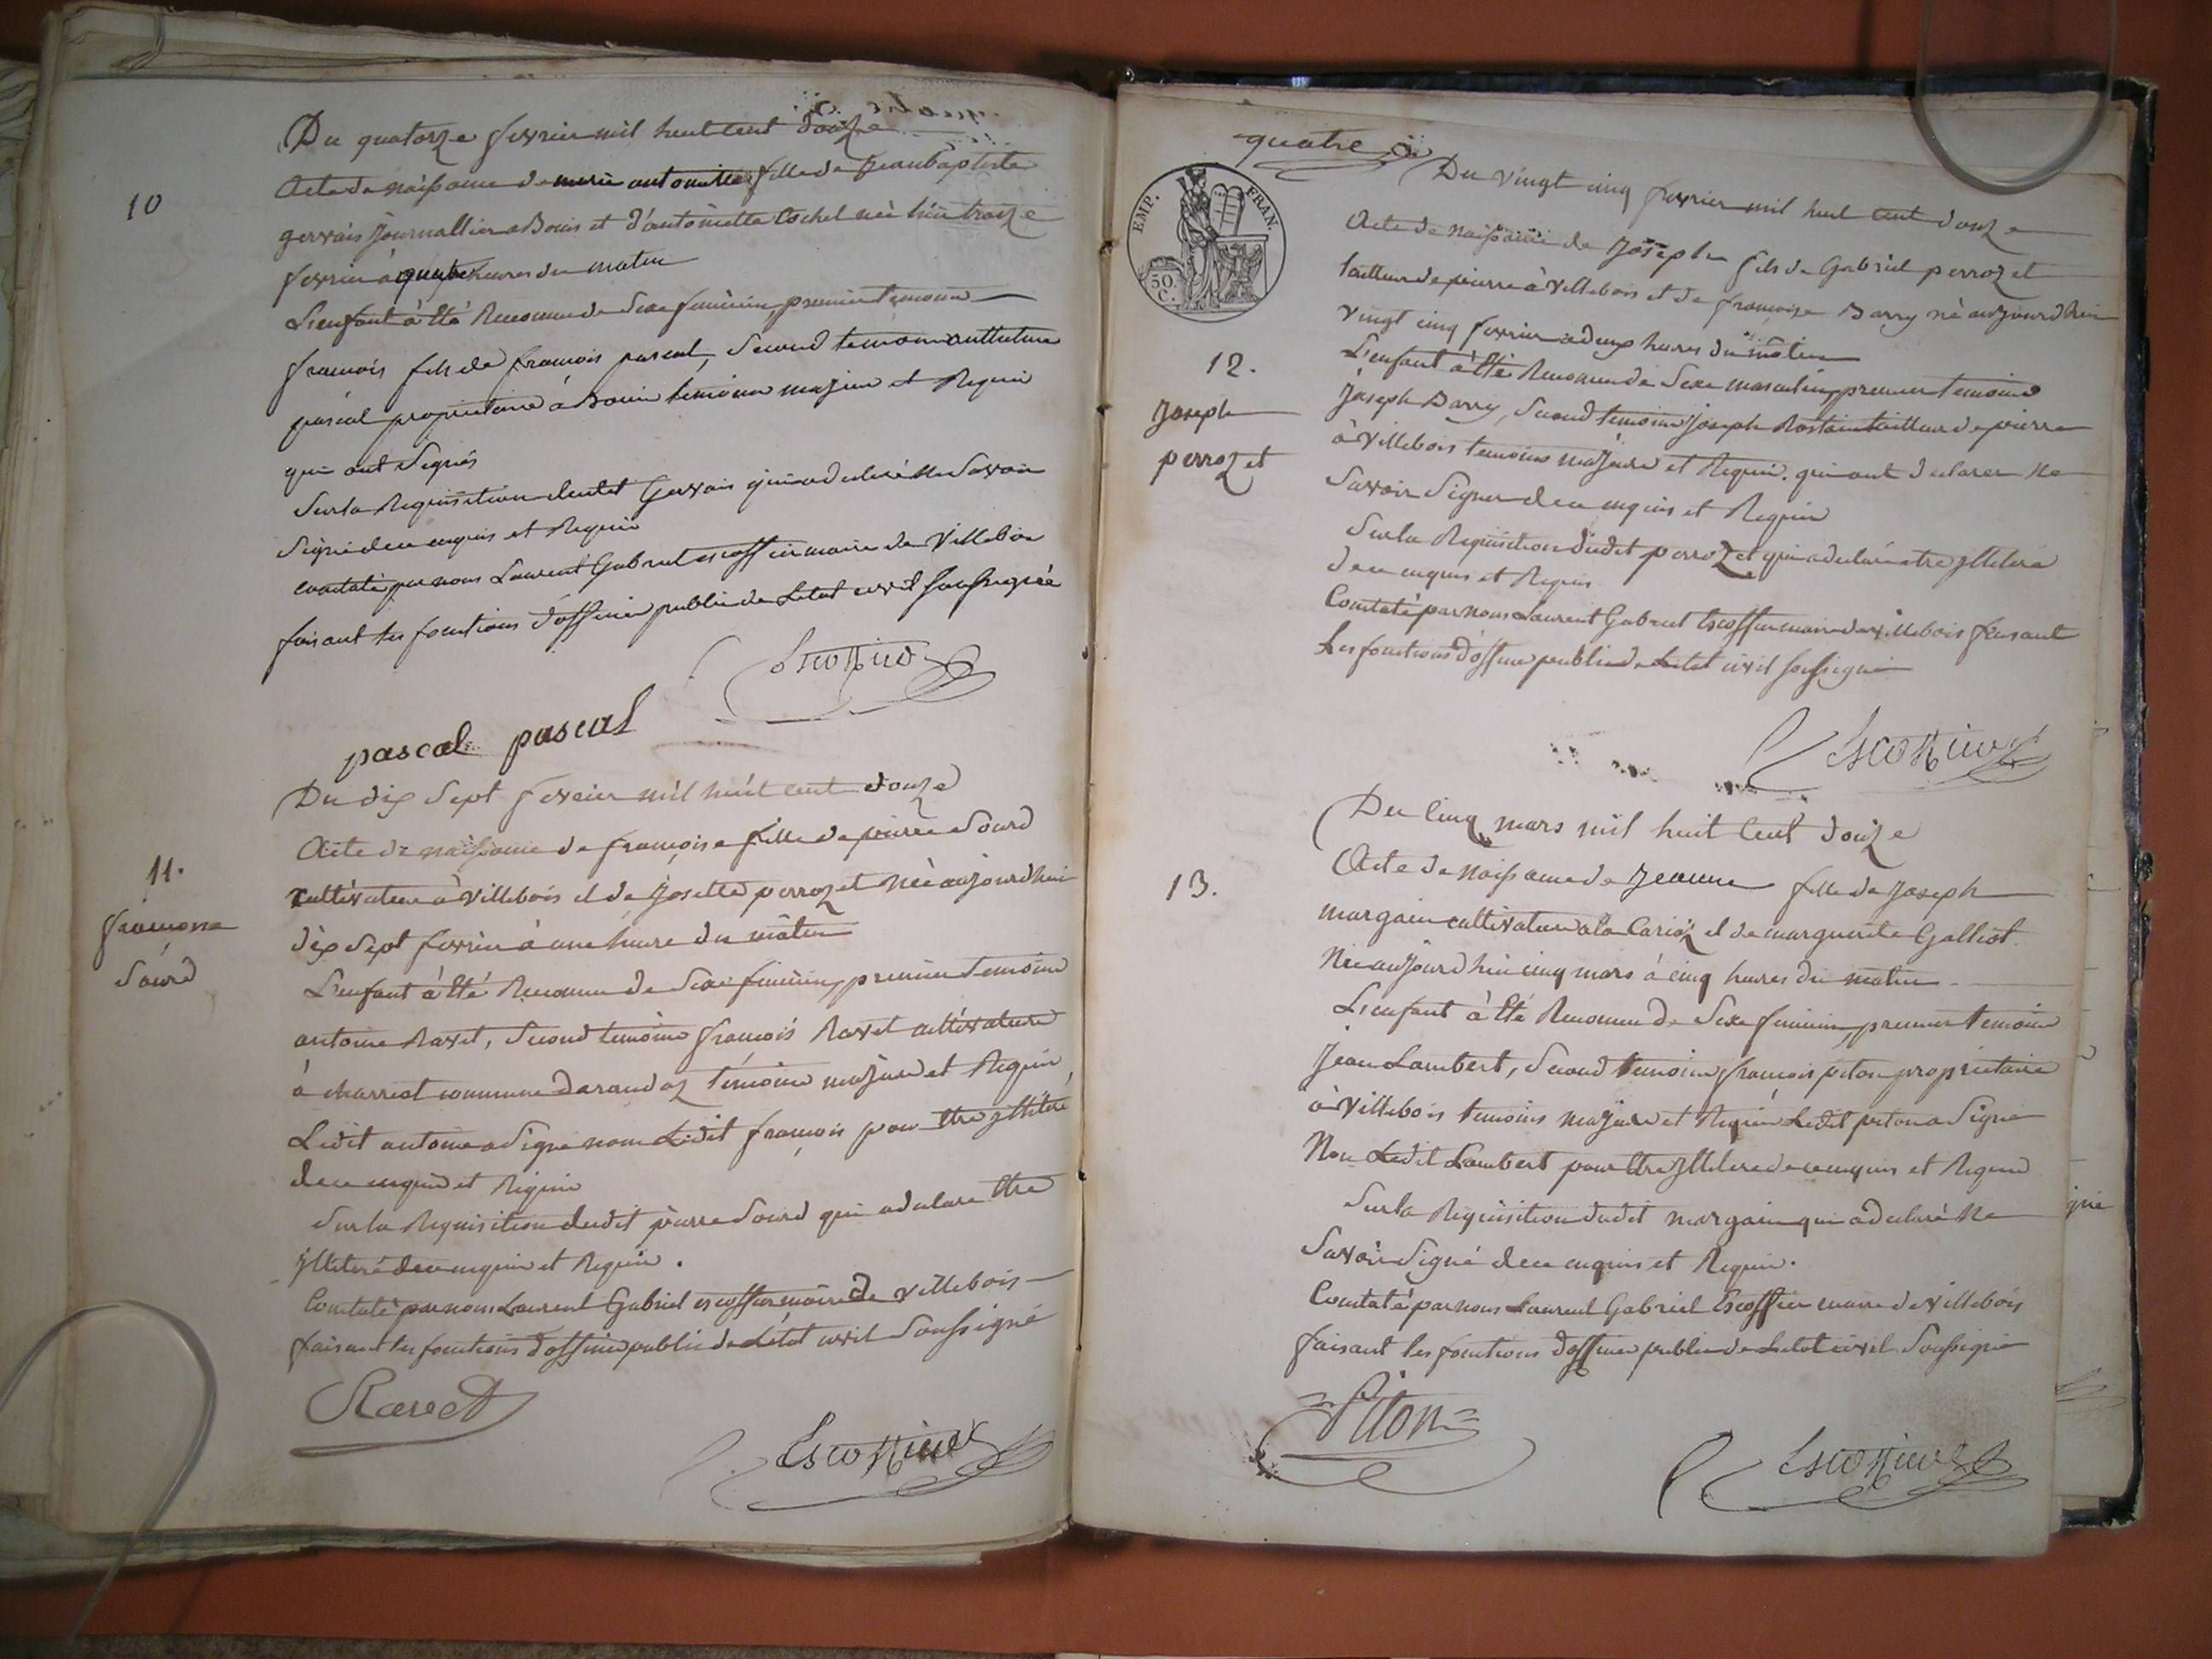 10
Du quatorze fevrier mil huit cent douze
Acte de naissance de marie antoinette fille de Jean baptiste
gervais Journallier a Bouis et d'antoinette Cochet née hier treize
fevrier à quatre heures du matin
L'enfant à été Reconnu de Sexe feminin, premier temoin
francois fils de francois pascal, Second temoin anthelme
pascal proprietaire à Bouis temoins majeur et Requis
qui ont Signés
Sur la Requisition dudit Gervais qui a declaré ne Savoir
Signé de ce enquis et Requis
constaté par nous Laurent Gabriel escoffier maire de Villebois
faisant les fonctions d'officier public de Letat civil Soussigné
Escoffier
pascal pascal
11.
francoise
Sourd
Du dix Sept fevrier mil huit cent douze
Acte de naissance de françoise fille de pierre Sourd
cultivateur à Villebois et de Josette perrozet née aujourdhui
dix Sept fevrier à une heure du matin
L'enfant à été Reconnu de Sexe feminin, premier temoin
antoine Ravet, Second temoin françois Ravet cultivateur
à charveot commune darandaz temoins majeur et Requis,
Ledit antoine a Signé non Ledit françois pour etre jlliteré
de ce enquis et Requis
Sur la Requisition dudit pierre Sourd qui a declare etre
jlliteré de ce enquis et Requis.
Constaté par nous Laurent Gabriel escoffier maire de Villebois
faisant les fonctions d'officier public de Létat civil Soussigné
Ravet
Escoffier
quatre
EMP. FRAN.
50 C.
12.
Joseph
perrozet
Du vingt cinq fevrier mil huit cent douze
Acte de naissance de Joseph fils de Gabriel perrozet
tailleur de pierre à Villebois et de françoise Barry né aujourdhui
vingt cinq fevrier a deux heures du matin
L'enfant à été Reconnu de Sexe masculin, premier temoin
Joseph Barry, Second temoin Joseph Rostain tailleur de pierre
à Villebois temoins majeurs et Requis. qui ont declarer ne
Savoir Signer de ce enquis et Requis
Sur la Requisition dudit perrozet qui a declaré etre jlliteré
de ce enquis et Requis
Constaté par nous Laurent Gabriel Escoffier maire de villebois faisant
Les fonctions d'officier public de Letat civil Soussigné
Escoffier
13.
Du Cinq mars mil huit Cent douze
Acte de naissance de Jeanne fille de Joseph
margain cultivateur a la Carioz et de marguerite Galliot.
Née aujourdhui cinq mars à cinq heures du matin
L'enfant à été Reconnu de Sexe feminin, premier temoin
Jean Lambert, Second temoin françois piton proprietaire
à Villebois temoins majeur et Requis Ledit piton a Signé
Non Ledit Lambert pour etre jlliteré de ce enquis et Requis
Sur la Requisition dudit margain qui a declaré ne
Savoir Signé de ce enquis et Requis.
Constaté par nous Laurent Gabriel Escoffier maire de villebois
faisant les fonctions d'officier public de Letat civil Soussigné
Piton
Escoffier